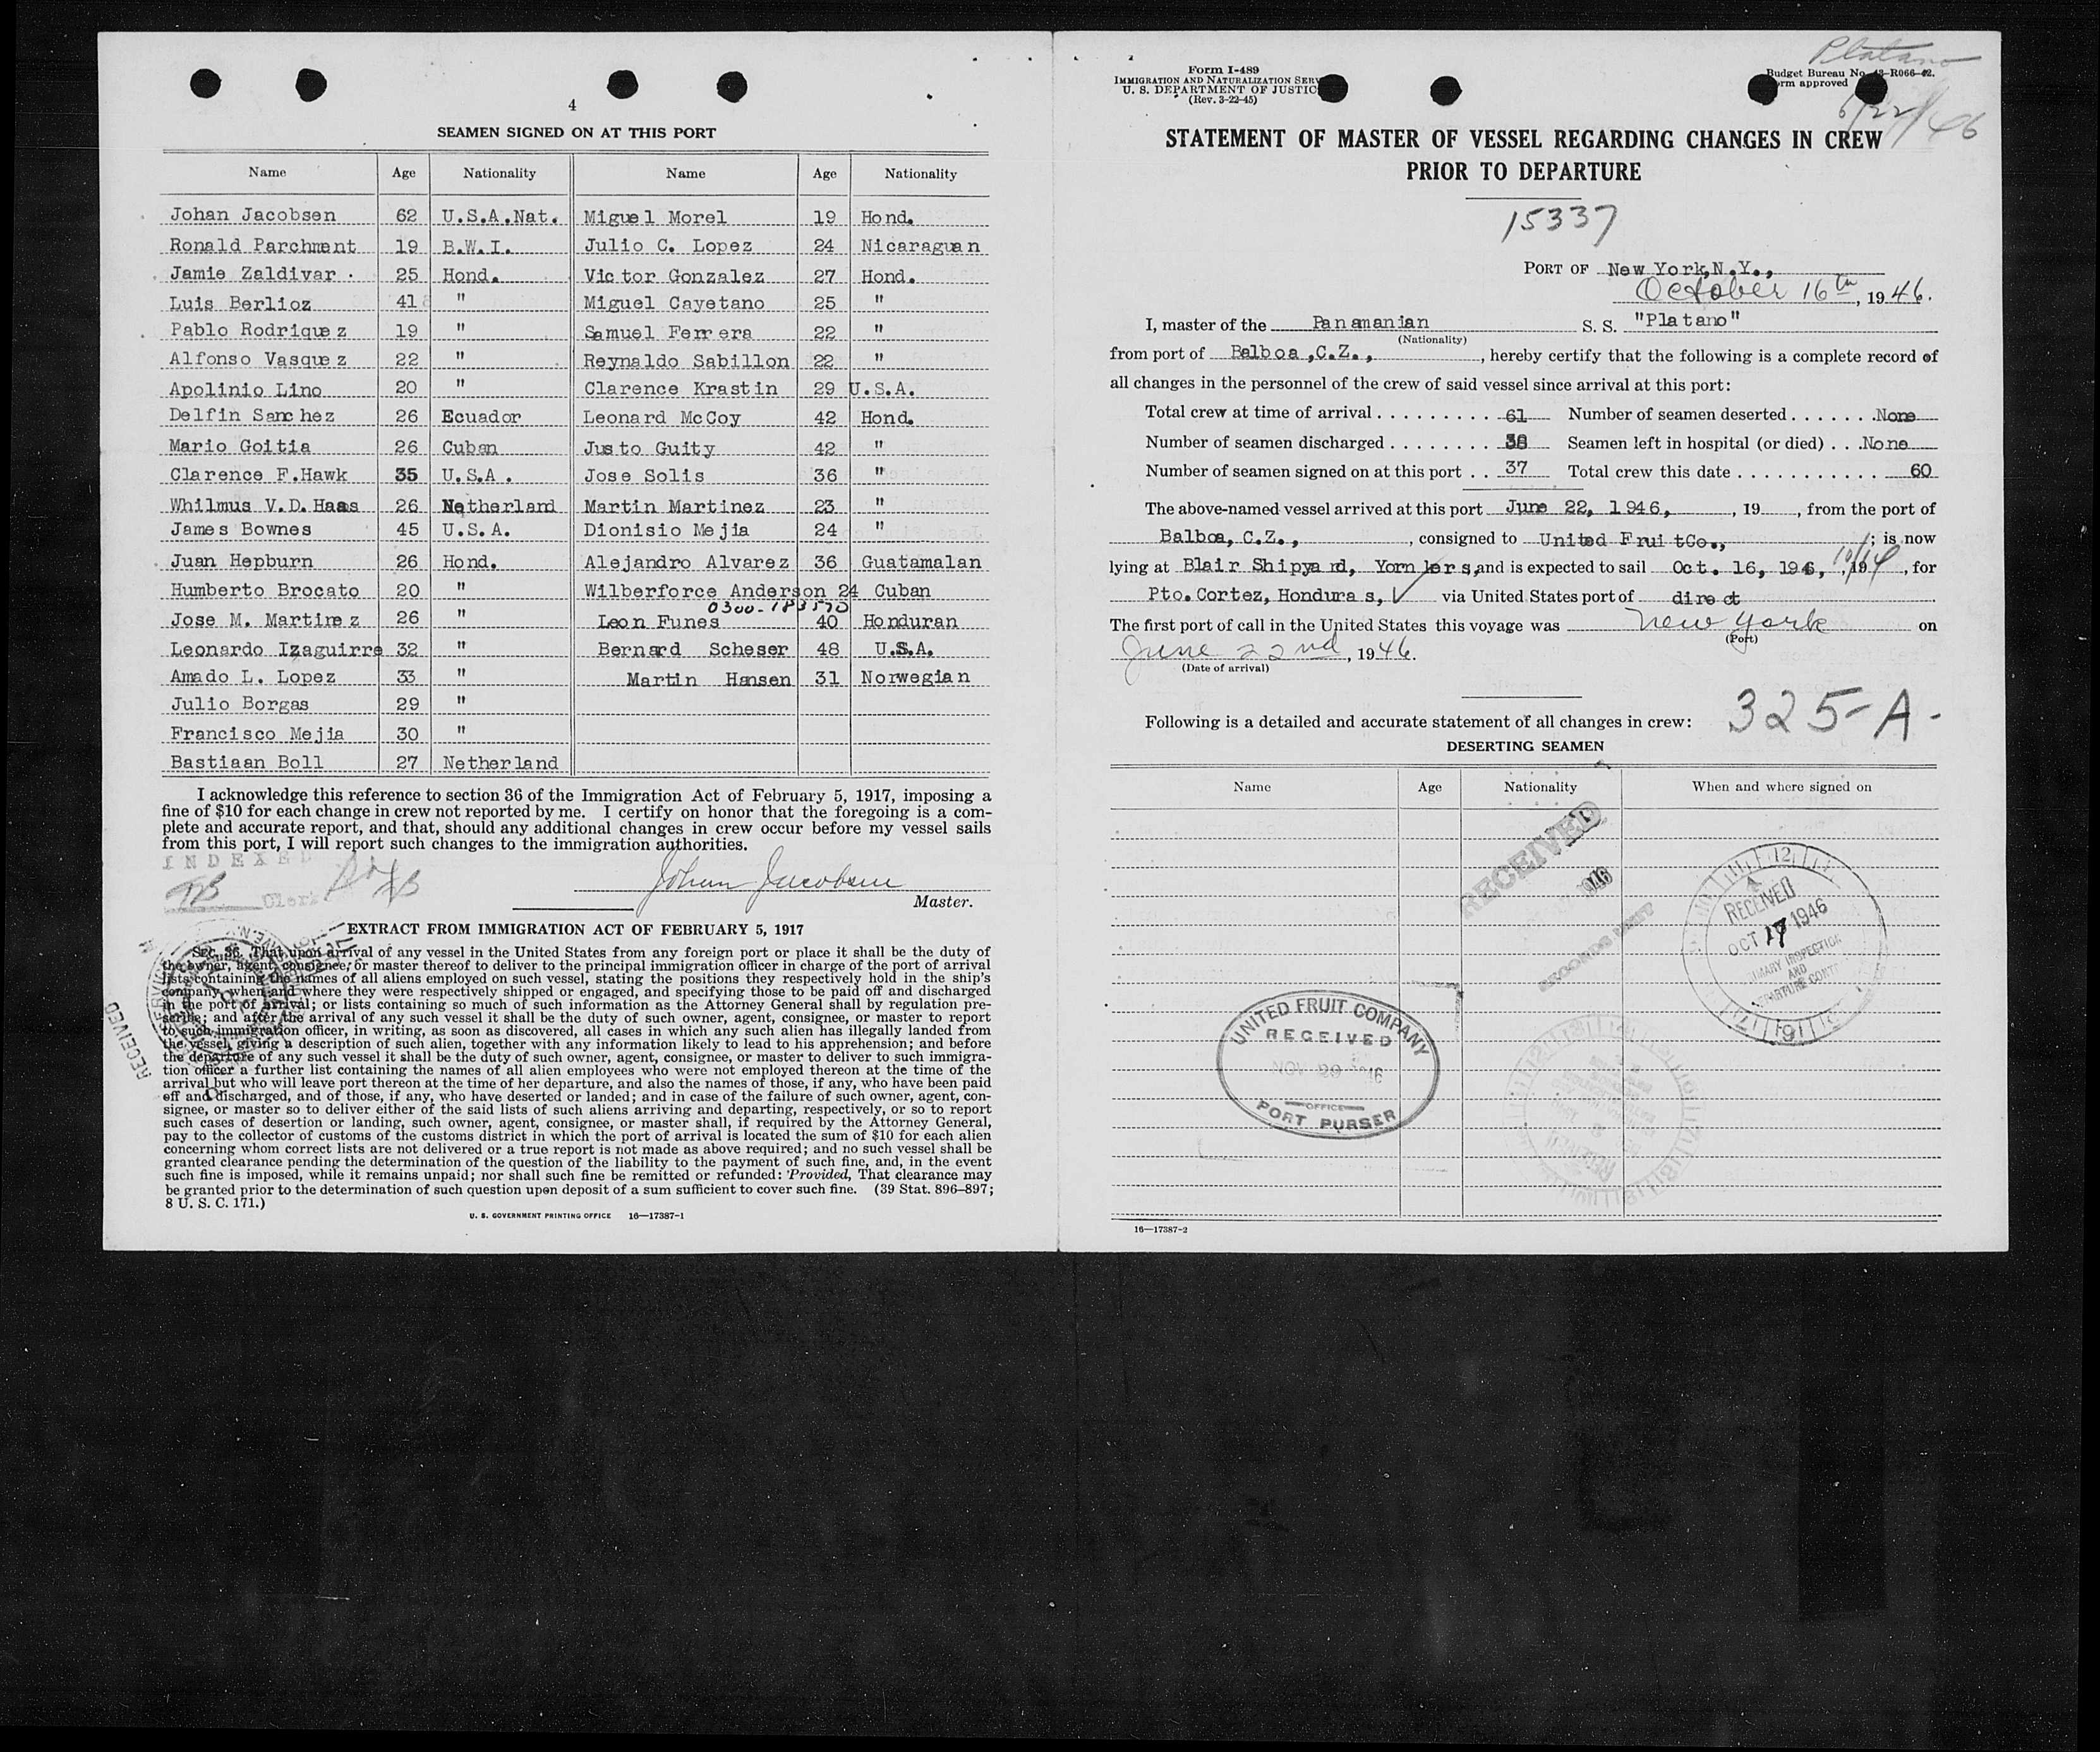 4
SEAMEN SIGNED ON AT THIS PORT
Name Age Nationality Name Age Nationality
Johan Jacobsen 62 U.S.A.Nat. Miguel Morel 19 Hond.
Ronald Parchment 19 B.W.I. Julio C. Lopez 24 Nicaraguan
Jamie Zaldivar . 25 Hond. Victor Gonzalez 27 Hond.
Luis Berlioz 41 " Miguel Cayetano 25 "
Pablo Rodriquez 19 " Samuel Ferrera 22 "
Alfonso Vasquez 22 " Reynaldo Sabillon 22 "
Apolinio Lino 20 " Clarence Krastin 29 U.S.A.
Delfin Sanchez 26 Ecuador Leonard McCoy 42 Hond.
Mario Goitia 26 Cuban Justo Guity 42 "
Clarence F.Hawk 35 U.S.A. Jose Solis 36 "
Whilmus V.D.Haas 26 Netherland Martin Martinez 23 "
James Bownes 45 U.S.A. Dionisio Mejia 24 "
Juan Hepburn 26 Hond. Alejandro Alvarez 36 Guatamalan
Humberto Brocato 20 " Wilberforce Anderson 24 Cuban
0300-183570
Jose M. Martinez 26 " Leon Funes 40 Honduran
Leonardo Izaguirre 32 " Bernard Scheser 48 U.S.A.
Amado L. Lopez 33 " Martin Hansen 31 Norwegian
Julio Borgas 29 "
Francisco Mejia 30 "
Bastiaan Boll 27 Netherland
I acknowledge this reference to section 36 of the Immigration Act of February 5, 1917, imposing a
fine of $10 for each change in crew not reported by me. I certify on honor that the foregoing is a com-
plete and accurate report, and that, should any additional changes in crew occur before my vessel sails
from this port, I will report such changes to the immigration authorities.
INDEXED
Clerk
Johan Jacobsen
Master.
EXTRACT FROM IMMIGRATION ACT OF FEBRUARY 5, 1917
Sec. 36. That upon arrival of any vessel in the United States from any foreign port or place it shall be the duty of
the owner, agent, consignee, or master thereof to deliver to the principal immigration officer in charge of the port of arrival
lists containing the names of all aliens employed on such vessel, stating the positions they respectively hold in the ship's
company, when and where they were respectively shipped or engaged, and specifying those to be paid off and discharged
in the port of arrival; or lists containing so much of such information as the Attorney General shall by regulation pre-
scribe; and after the arrival of any such vessel it shall be the duty of such owner, agent, consignee, or master to report
to such immigration officer, in writing, as soon as discovered, all cases in which any such alien has illegally landed from
the vessel, giving a description of such alien, together with any information likely to lead to his apprehension; and before
the departure of any such vessel it shall be the duty of such owner, agent, consignee, or master to deliver to such immigra-
tion officer a further list containing the names of all alien employees who were not employed thereon at the time of the
arrival but who will leave port thereon at the time of her departure, and also the names of those, if any, who have been paid
off and discharged, and of those, if any, who have deserted or landed; and in case of the failure of such owner, agent, con-
signee, or master so to deliver either of the said lists of such aliens arriving and departing, respectively, or so to report
such cases of desertion or landing, such owner, agent, consignee, or master shall, if required by the Attorney General,
pay to the collector of customs of the customs district in which the port of arrival is located the sum of $10 for each alien
concerning whom correct lists are not delivered or a true report is not made as above required; and no such vessel shall be
granted clearance pending the determination of the question of the liability to the payment of such fine, and, in the event
such fine is imposed, while it remains unpaid; nor shall such fine be remitted or refunded: Provided, That clearance may
be granted prior to the determination of such question upon deposit of a sum sufficient to cover such fine. (39 Stat. 896–897;
8 U. S. C. 171.)
RECEIVED
U. S. GOVERNMENT PRINTING OFFICE 16—17387-1
Platano
Form I-489
IMMIGRATION AND NATURALIZATION SERV
U. S. DEPARTMENT OF JUSTIC
(Rev. 3-22-45)
Budget Bureau No. 43-R066-42.
orm approved
6/22/46
STATEMENT OF MASTER OF VESSEL REGARDING CHANGES IN CREW
PRIOR TO DEPARTURE
15337
PORT OF New York,N.Y.,
October 16th, 1946.
I, master of the Panamanian S. S. "Platano"
(Nationality)
from port of Balboa,C.Z., , hereby certify that the following is a complete record of
all changes in the personnel of the crew of said vessel since arrival at this port:
Total crew at time of arrival . . . . . . . . . 61 Number of seamen deserted . . . . . . . None
Number of seamen discharged . . . . . . . . 38 Seamen left in hospital (or died) . . None
Number of seamen signed on at this port . . 37 Total crew this date . . . . . . . . . . . . 60
The above-named vessel arrived at this port June 22, 1946, , 19 , from the port of
Balboa, C.Z., , consigned to United FruitCo., ; is now
lying at Blair Shipyard, Yornkers, and is expected to sail Oct. 16, 1946, , 19 , for
10/16
Pto. Cortez, Honduras, via United States port of direct
The first port of call in the United States this voyage was New York on
(Port)
June 22nd, 1946.
(Date of arrival)
325-A-
Following is a detailed and accurate statement of all changes in crew:
DESERTING SEAMEN
Name Age Nationality When and where signed on
RECEIVED
1946
RECORDS UNIT
RECEIVED
OCT 17 1946
PRIMARY INSPECTION
AND
DEPARTURE CONT
UNITED FRUIT COMPANY
RECEIVED
NOV 29 1946
OFFICE
PORT PURSER
RECEIVED
16—17387-2